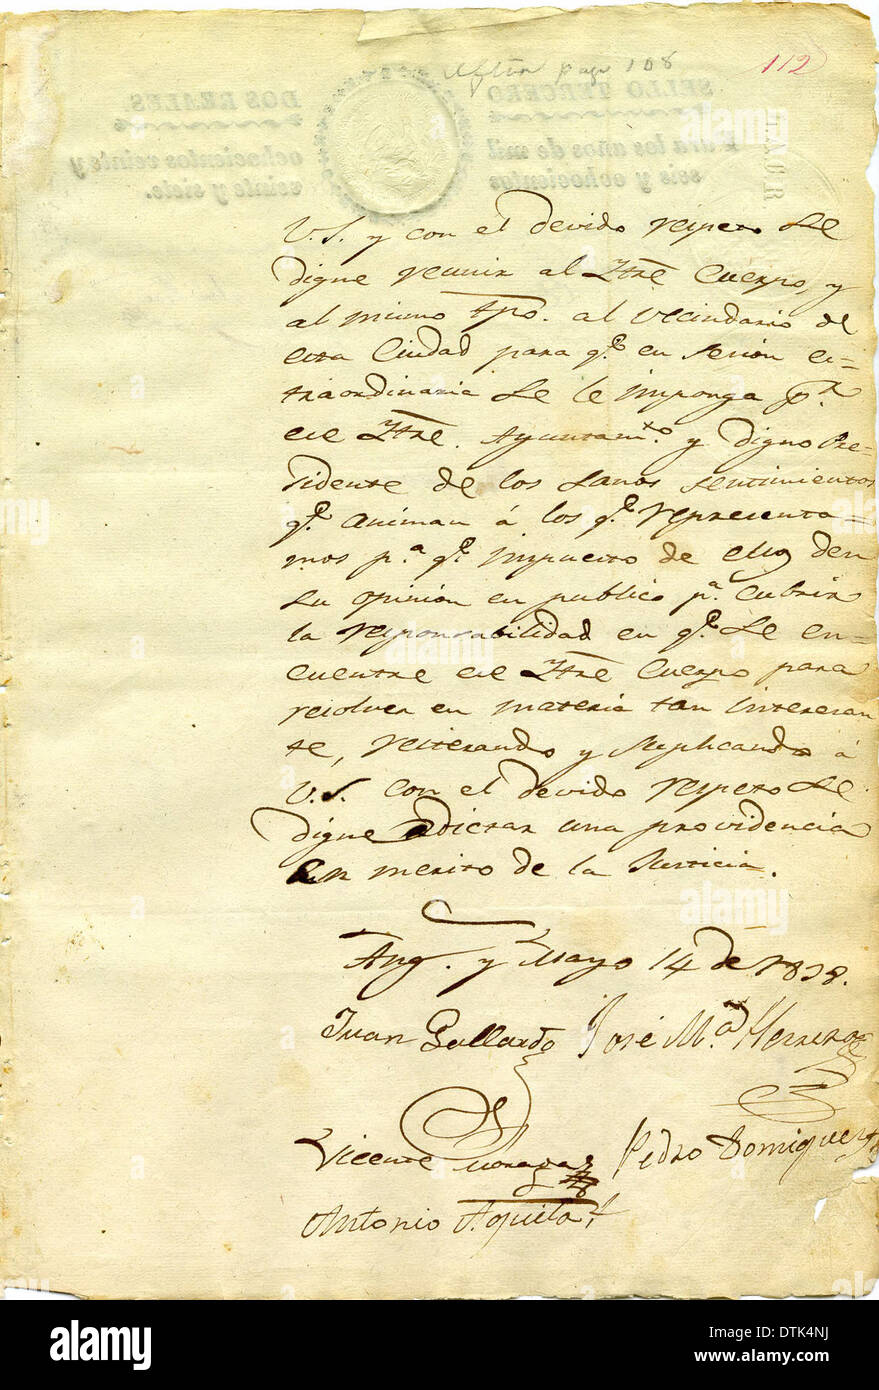 After page 108
112
SELLO TERCERO
DOS REALES.
Para los años de mil
ochocientos veinte y
seis y ochocientos
veinte y siete.
V.S. y con el devido respeto Se
digne reunir al Ytrē Cuerpo, y
al mismo Tpō. al Vecindario de
esta Ciudad para q.e en sesion es=
traordinaria Se le imponga p.r
ese Ytrē. Ayuntam.to y digno Pre=
sidente de los Sanos sentimientos
q.e animan á los q.e representa=
mos p.a q.e impuesto de ellos den
Su opinion en publico p.a cubrir
la responsabilidad en q.e Se en=
cuentre ese Ytrē Cuerpo para
resolver en materia tan interesan
te, reiterando y Suplicando á
V.S. con el devido respeto Se
digne dictar una providencia
en merito de la Justicia.
Ang.s y Mayo 14 de 1838.
Juan Gallardo José M.a Herrera
Vicente Moraga Pedro Domiguez
Antonio Aguila
alamy
Image ID: DTK4NJ
www.alamy.com